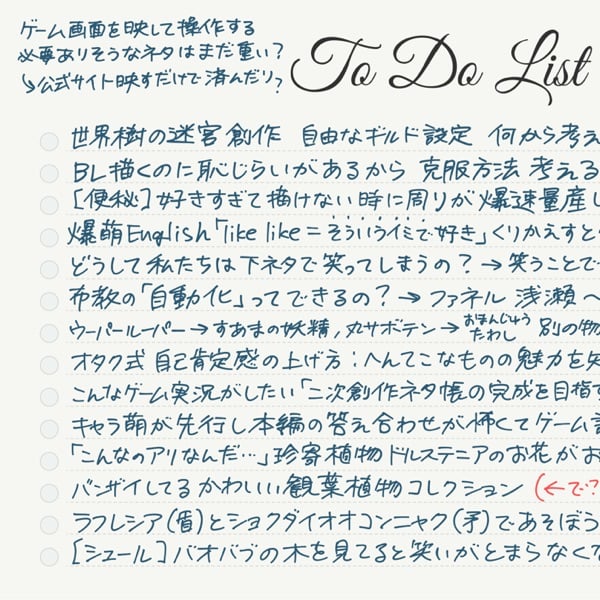 ゲーム画面を映して操作する
必要ありそうなネタはまだ重い?
↳公式サイト映すだけで済んだり?
To Do List
世界樹の迷宮創作 自由なギルド設定 何から考え
BL描くのに恥じらいがあるから 克服方法 考える
[便秘]好きすぎて描けない時に周りが爆速量産し
爆萌English「like like = そういうイミで好き」くりかえすと
どうして私たちは下ネタで笑ってしまうの?→笑うことで
布教の「自動化」ってできるの?→ ファネル 浅瀬へ
ウーパールーパー→すあまの妖精, 丸サボテン→おまんじゅう たわし 別の物
オタク式 自己肯定感の上げ方:へんてこなものの魅力を
こんなゲーム実況がしたい「二次創作ネタ帳の完成を目指す
キャラ萌が先行し本編の答え合わせが怖くてゲーム
「こんなのアリなんだ…」珍奇植物ドルステニアのお花がお
バンザイしてるかわいい観葉植物コレクション (←で?
ラフレシア(盾)とショクダイオオコンニャク(矛)であそぼう
[シュール]バオバブの木を見てると笑いがとまらなくな